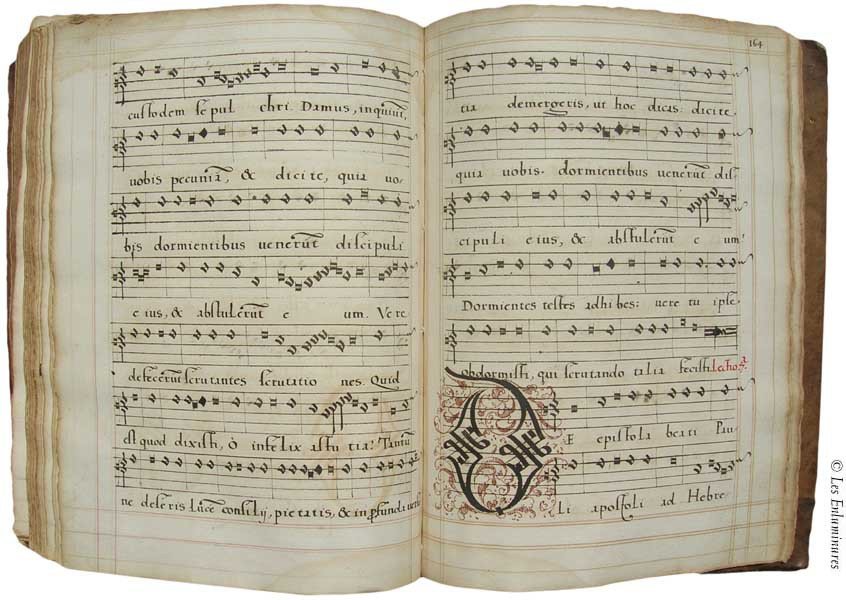 custodem sepul chri. Damus, inquiūt,
uobis pecuniā, & dicite, quia uo-
bis dormientibus uenerūt discipuli
eius, & abstulerūt e um. Vere
defecerūt scrutantes scrutatio nes. Quid
est quod dixisti, ò infelix astu tia? Tantū
ne deseris lucē consilij, pietatis, & in profunda uersu
164
tia demergeris, ut hoc dicas: dicite,
quia uobis dormientibus uenerūt dis-
cipuli eius, & abstulerūt e um?
Dormientes testes adhibes: uere tu ipse
obdormisti, qui scrutando talia fecisti. Lectio
DE epistola beati Pau
li apostoli ad Hebre
© Les Enluminures